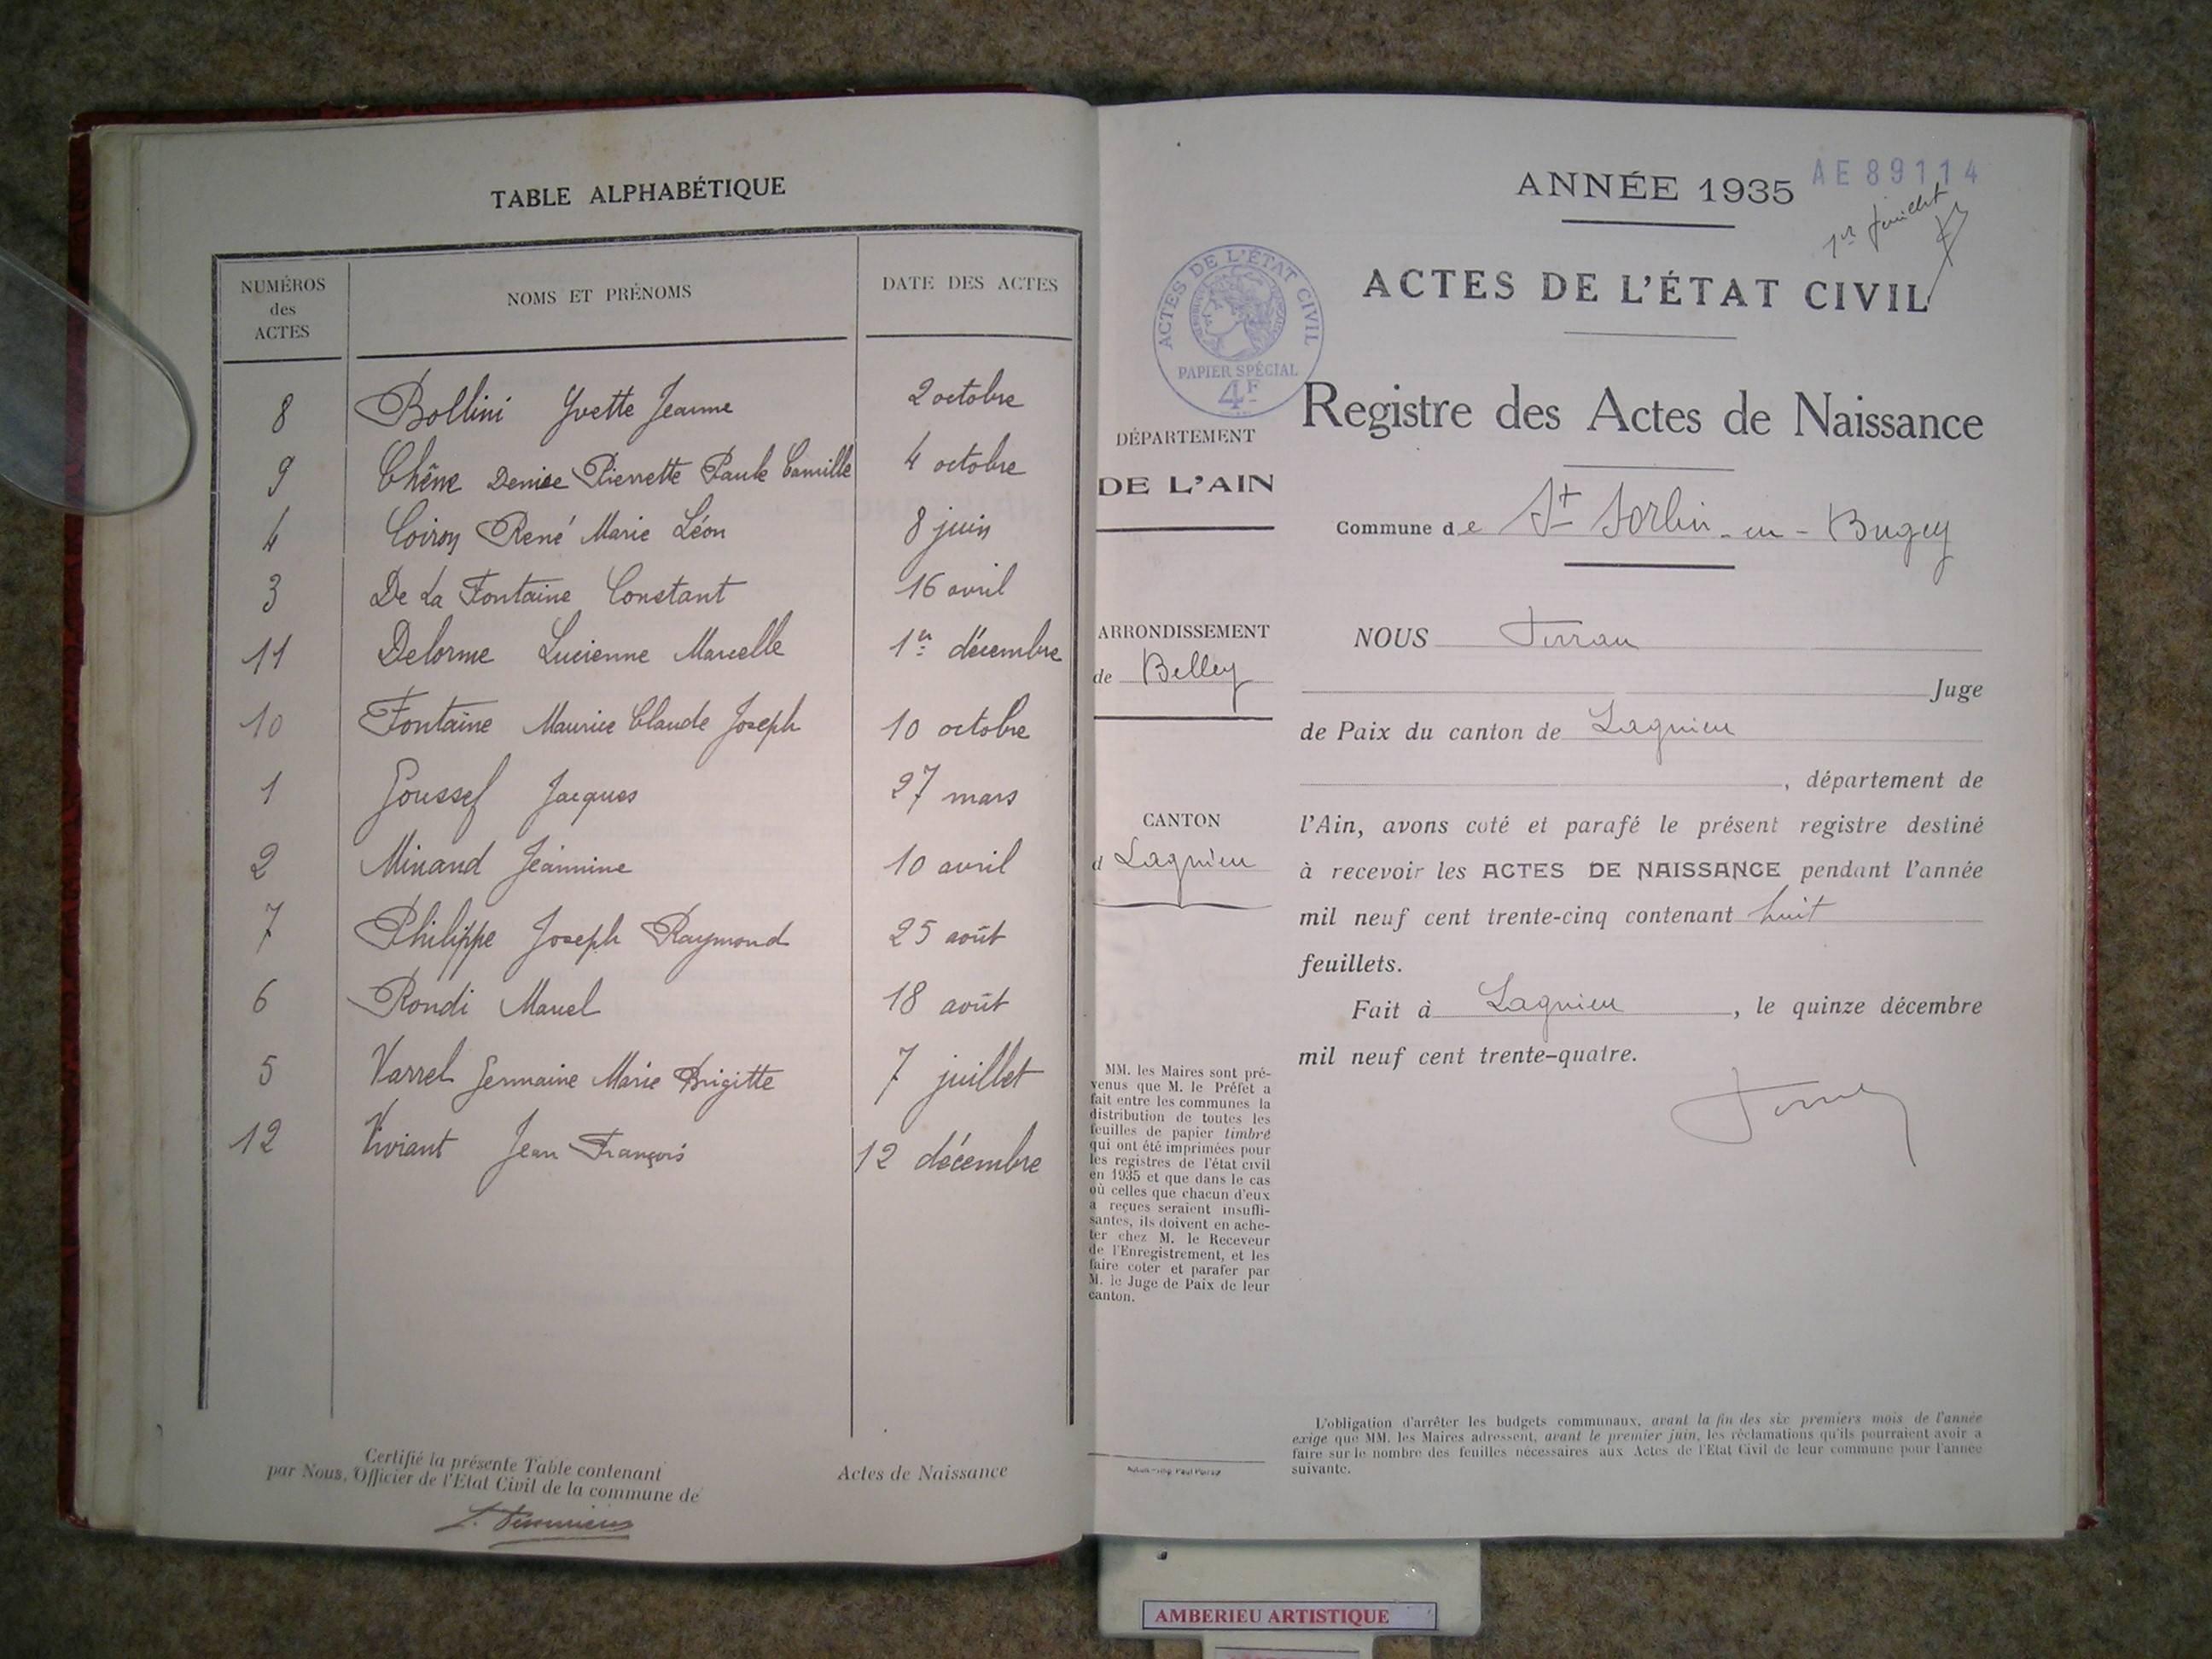 TABLE ALPHABÉTIQUE
NUMÉROS des ACTES NOMS ET PRÉNOMS DATE DES ACTES
8 Bollini Yvette Jeanne 2 octobre
9 Chêne Denise Pierrette Paule Camille 4 octobre
4 Coiron René Marie Léon 8 juin
3 De La Fontaine Constant 16 avril
11 Delorme Lucienne Marcelle 1er décembre
10 Fontaine Maurice Claude Joseph 10 octobre
1 Goussef Jacques 27 mars
2 Minand Jeannine 10 avril
7 Philippe Joseph Raymond 25 août
6 Rondi Marcel 18 août
5 Varrel Germaine Marie Brigitte 7 juillet
12 Viviant Jean François 12 décembre
Certifié la présente Table contenant Actes de Naissance
par Nous, Officier de l'Etat Civil de la commune de
ANNÉE 1935
AE89114
1er feuillet
ACTES DE L'ÉTAT CIVIL
PAPIER SPÉCIAL
4F
ACTES DE L'ÉTAT CIVIL
Registre des Actes de Naissance
DÉPARTEMENT
DE L'AIN
Commune de St Sorlin-en-Bugey
ARRONDISSEMENT
de Belley
CANTON
d Lagnieu
NOUS
Juge
de Paix du canton de Lagnieu
, département de
l'Ain, avons coté et parafé le présent registre destiné
à recevoir les ACTES DE NAISSANCE pendant l'année
mil neuf cent trente-cinq contenant huit
feuillets.
Fait à Lagnieu, le quinze décembre
mil neuf cent trente-quatre.
MM. les Maires sont pré-
venus que M. le Préfet a
fait entre les communes la
distribution de toutes les
feuilles de papier timbré
qui ont été imprimées pour
les registres de l'état civil
en 1935 et que dans le cas
où celles que chacun d'eux
a reçues seraient insuffi-
santes, ils doivent en ache-
ter chez M. le Receveur
de l'Enregistrement, et les
faire coter et parafer par
M. le Juge de Paix de leur
canton.
L'obligation d'arrêter les budgets communaux, avant la fin des six premiers mois de l'année
exige que MM. les Maires adressent, avant le premier juin, les réclamations qu'ils pourraient avoir a
faire sur le nombre des feuilles nécessaires aux Actes de l'Etat Civil de leur commune pour l'année
suivante.
AMBERIEU ARTISTIQUE